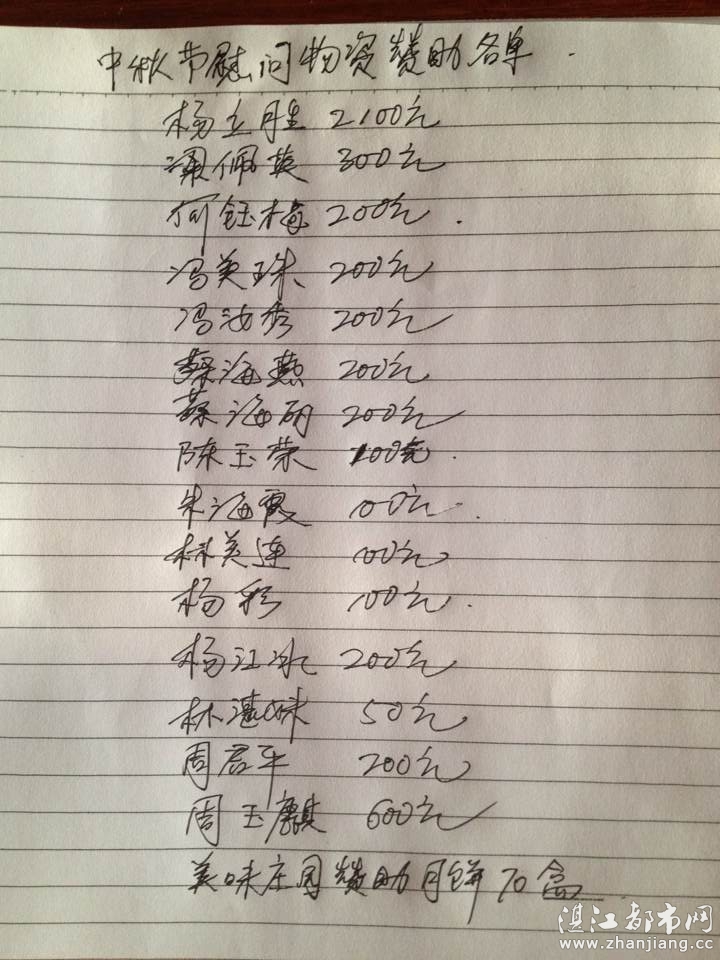 中秋节慰问物资赞助名单.
杨立胜 2100元
谭佩英 300元
何钰梅 200元.
冯美珠 200元
冯汝秀 200元
蔡海燕 200元
蔡海明 200元
陈玉荣 100元.
朱海霞 100元.
林美连 100元
杨彩 100元.
杨江冰 200元
林湛妹 50元
周君平 200元
周玉麒 600元
美味庄园赞助月饼70盒.
湛江都市网
www.zhanjiang.cc